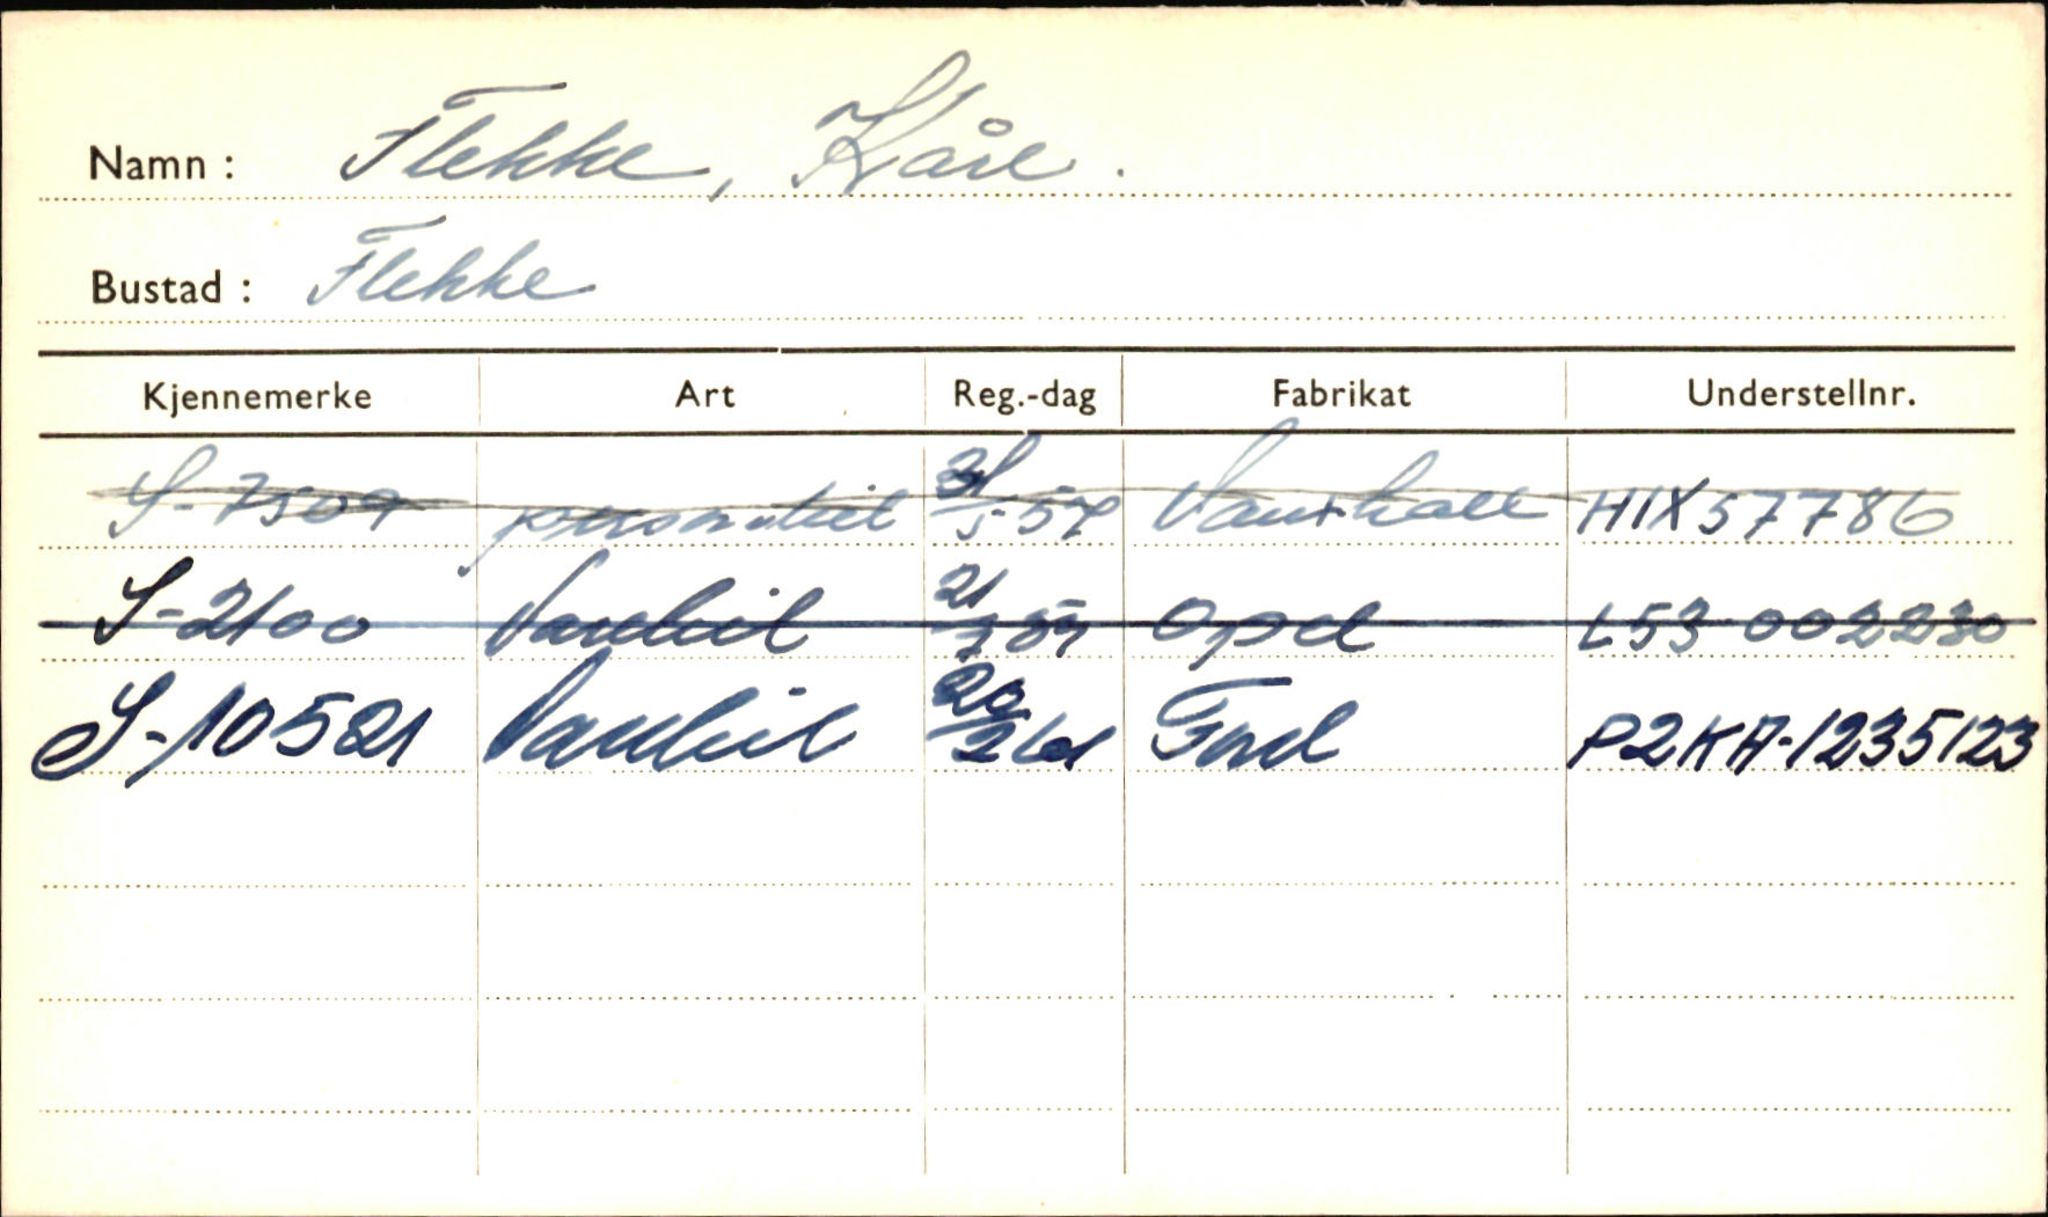 Namn : Flekke, Kåre.
Bustad : Flekke
Kjennemerke Art Reg.-dag Fabrikat Understellnr.
S-7507 personbil 31/5-57 Vauxhall HIX57786
S-2100 Varebil 21/7 59 Opel L53-002230
S-10521 Varebil 20/2 61 Ford P2KA-1235123